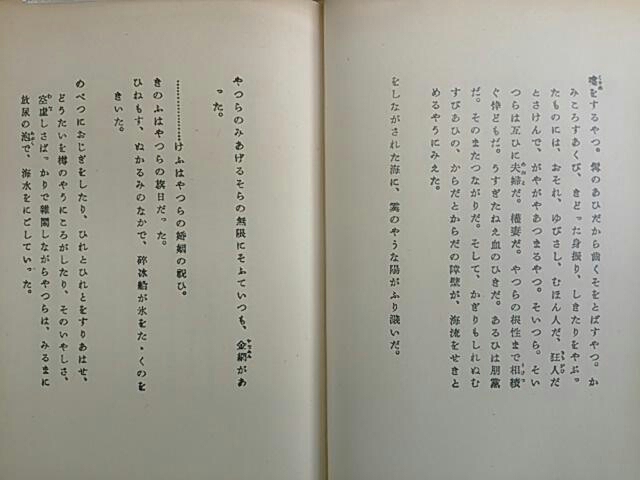 嚏をするやつ。髯のあひだから歯くそをとばすやつ。か
みころすあくび、きどった身振り、しきたりをやぶっ
たものには、おそれ、ゆびさし、むほん人だ、狂人だ
とさけんで、がやがやあつまるやつ。そいつら。そい
つらは互ひに夫婦だ。権妻だ。やつらの根性まで相続
ぐ倅どもだ。うすぎたねえ血のひきだ。あるひは朋党
だ。そのまたつながりだ。そして、かぎりもしれぬむ
すびあひの、からだとからだの障壁が、海流をせきと
めるやうにみえた。
をしながされた海に、霙のやうな陽がふり濺いだ。
やつらのみあげるそらの無限にそふていつも、金網があ
った。
……………けふはやつらの婚姻の祝ひ。
きのふはやつらの旗日だった。
ひねもす、ぬかるみのなかで、砕氷船が氷をたゝくのを
きいた。
のべつにおじぎをしたり、ひれとひれとをすりあはせ、
どうたいを樽のやうにころがしたり、そのいやしさ、
空虚しさばっかりで雑閙しながらやつらは、みるまに
放尿の泡で、海水をにごしていった。